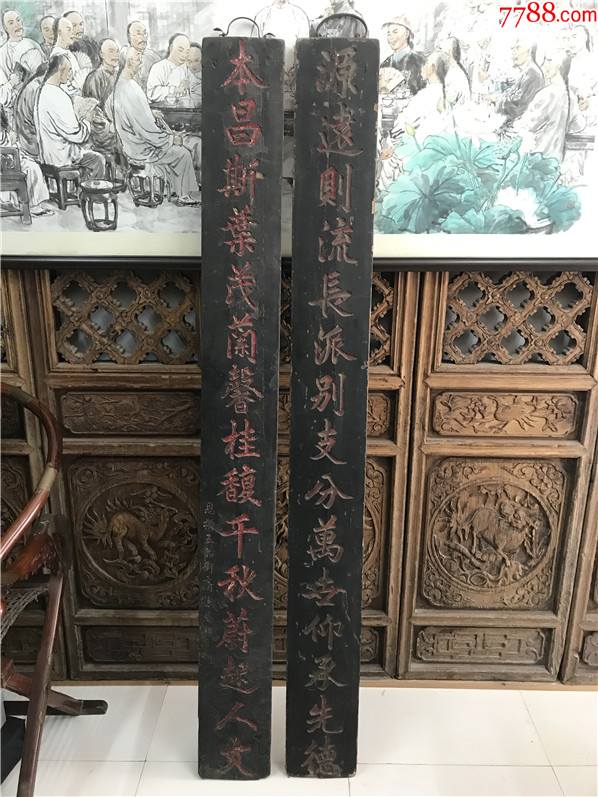 7788.com
源遠則流長派别支分萬世仰承先德
本昌斯葉茂蘭馨桂馥千秋蔚起人文